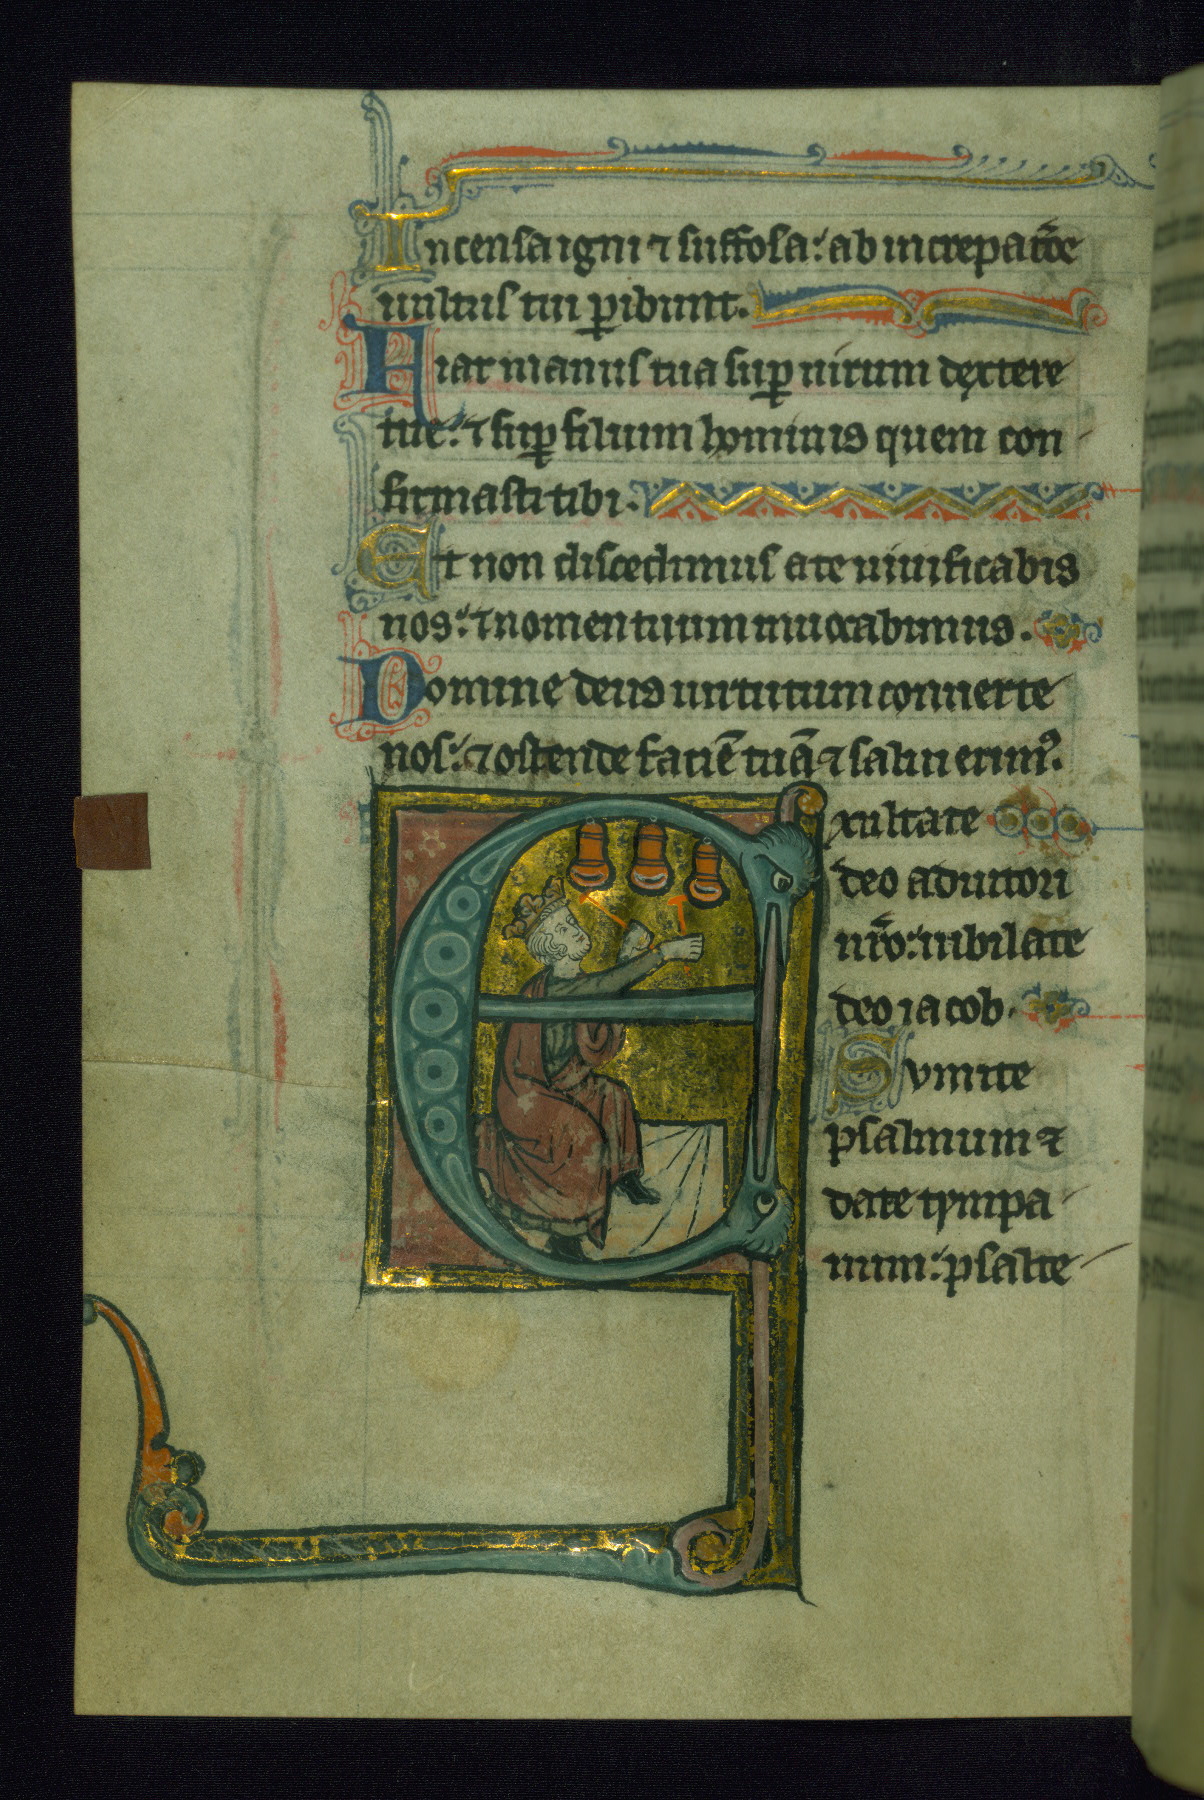 Incensa igni ⁊ suffosa: ab increpatōe
uultus tui ꝑibunt.
Fiat manus tua suꝑ uirum dextere
tue: ⁊ suꝑ filium hominis quem con
firmasti tibi.
Et non discedimus a te uiuificabis
nos: ⁊ nomen tuum inuocabimus.
Domine deus uirtutum conuerte
nos: ⁊ ostende faciē tuā ⁊ salui erimꝰ.
Exultate
deo adiutori
nr̄o: iubilate
deo iacob.
Sumite
psalmum ⁊
date tympa
num: psalte